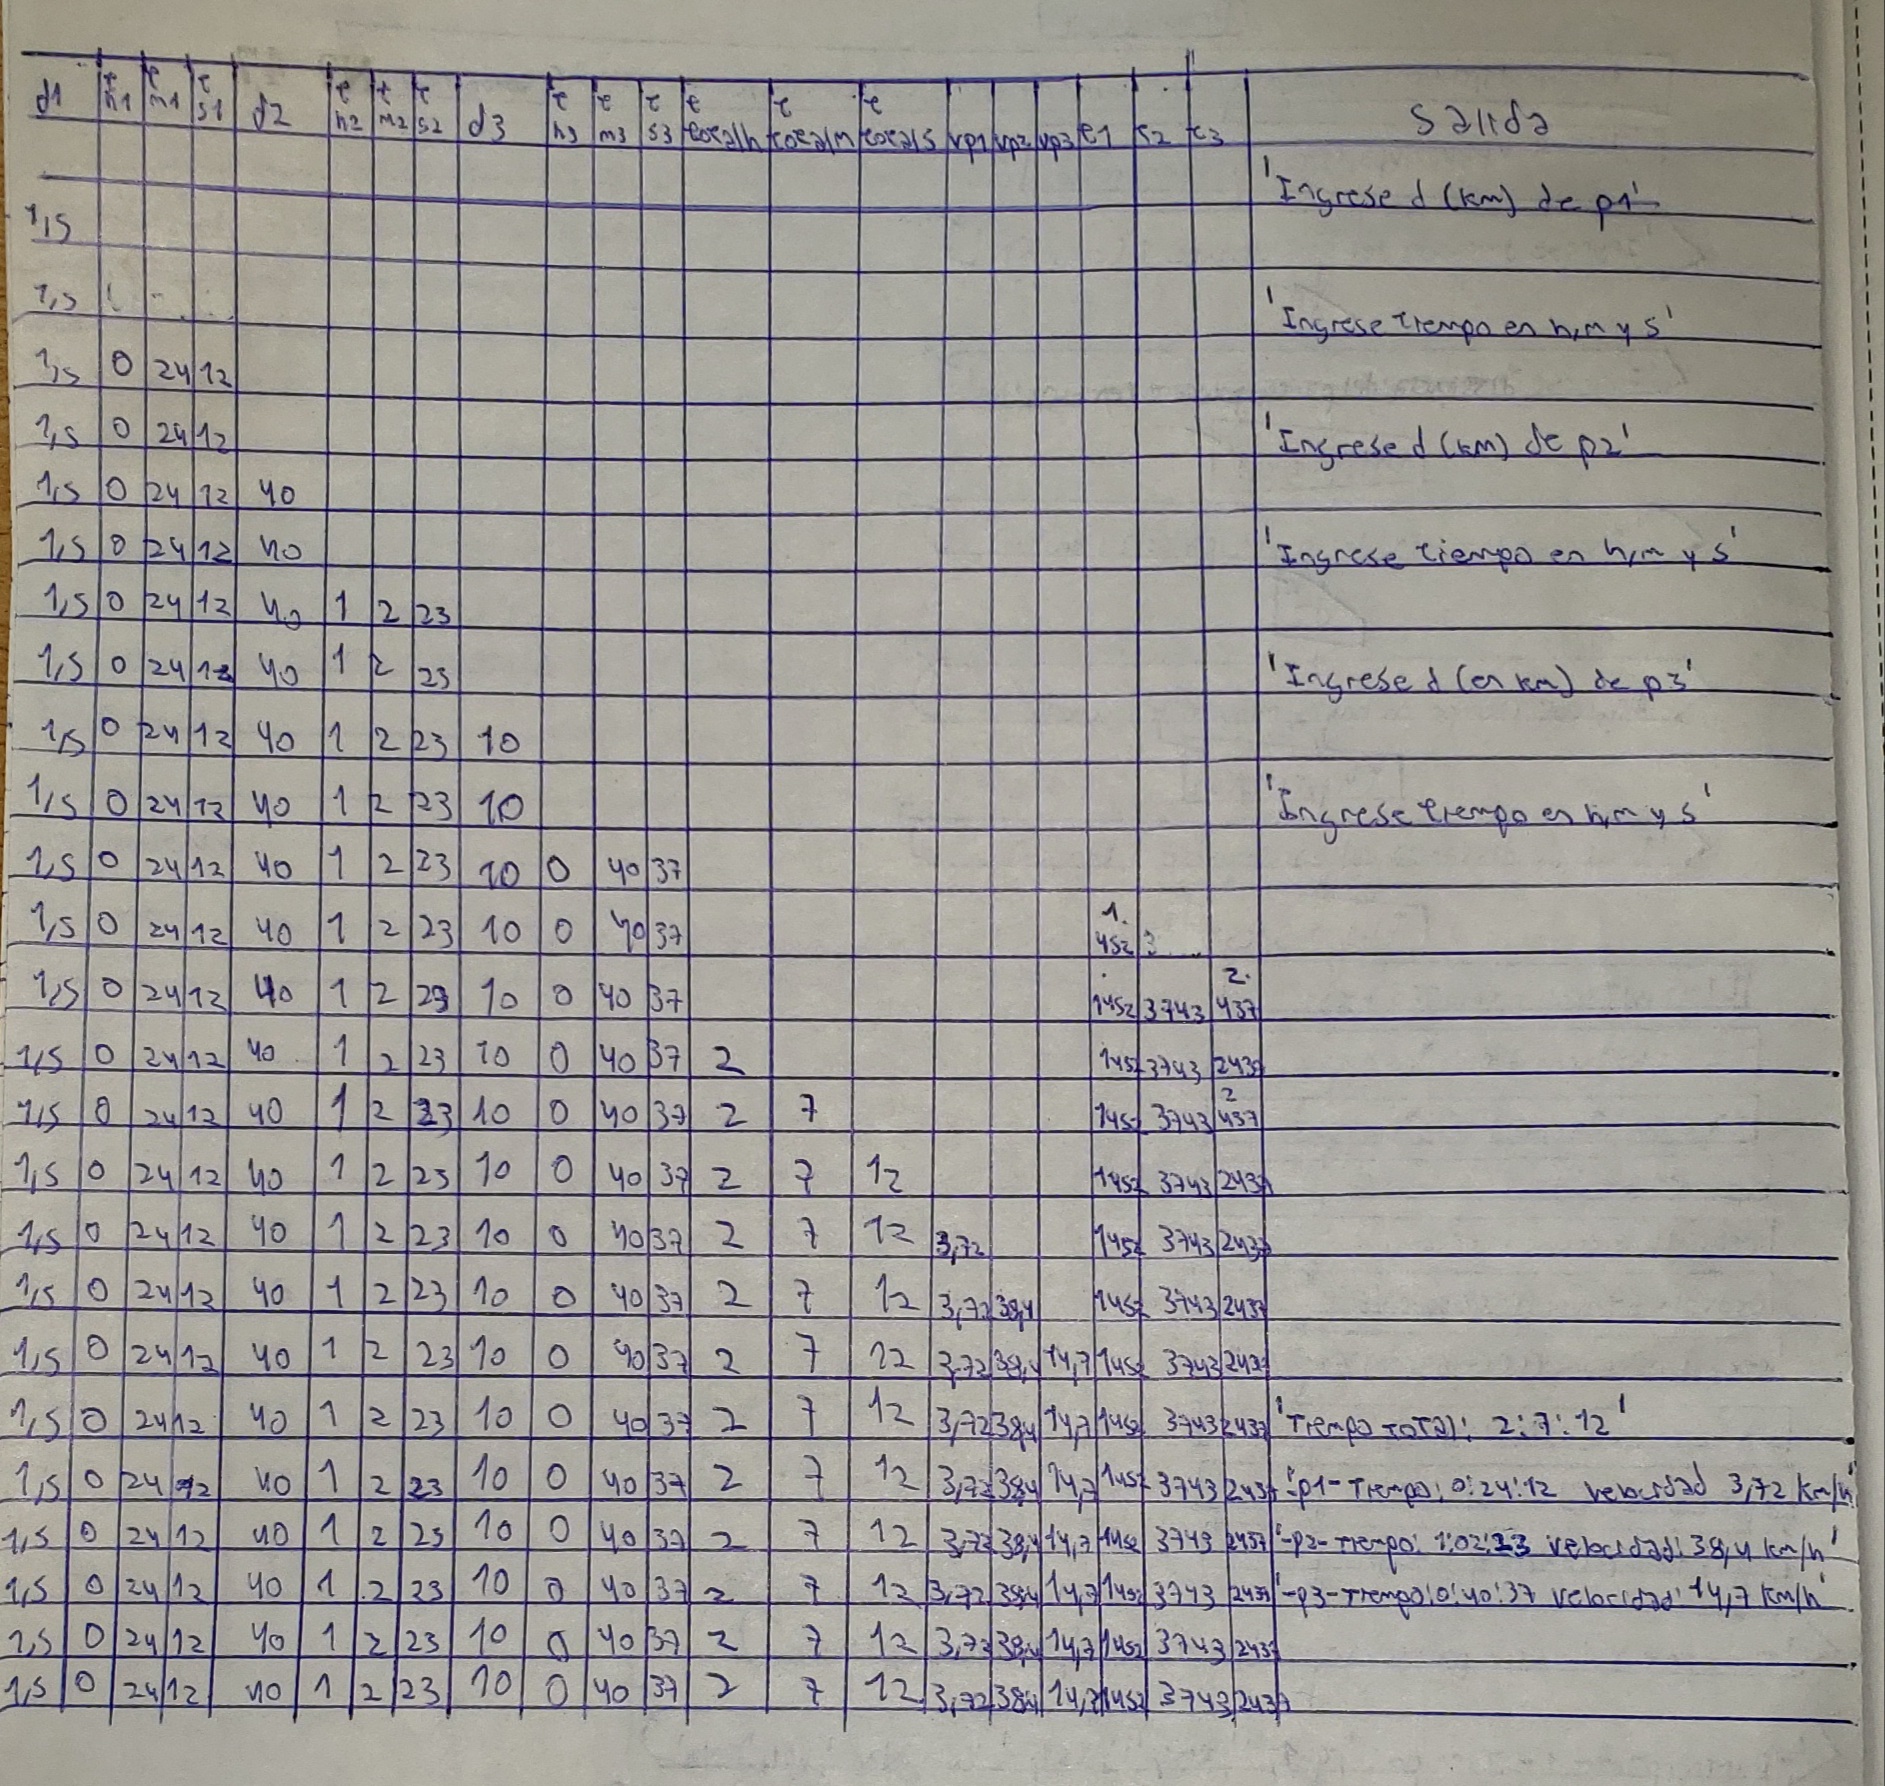 d1 th1 tm1 ts1 d2 th2 tm2 ts2 d3 th3 tm3 ts3 ttotalh ttotalm ttotals vp1 vp2 vp3 t1 t2 t3 Salida
'Ingrese d (km) de p1'
1,5
1,5 'Ingrese tiempo en h,m y s'
1,5 0 24 12
1,5 0 24 12 'Ingrese d (km) de p2'
1,5 0 24 12 40
1,5 0 24 12 40 'Ingrese tiempo en h,m y s'
1,5 0 24 12 40 1 2 23
1,5 0 24 12 40 1 2 23 'Ingrese d (en km) de p3'
1,5 0 24 12 40 1 2 23 10
1,5 0 24 12 40 1 2 23 10 'Ingrese tiempo en h,m y s'
1,5 0 24 12 40 1 2 23 10 0 40 37
1,5 0 24 12 40 1 2 23 10 0 40 37 1452
1,5 0 24 12 40 1 2 23 10 0 40 37 1452 3743 2437
1,5 0 24 12 40 1 2 23 10 0 40 37 2 1452 3743 2437
1,5 0 24 12 40 1 2 23 10 0 40 37 2 7 1452 3743 2437
1,5 0 24 12 40 1 2 23 10 0 40 37 2 7 12 1452 3743 2437
1,5 0 24 12 40 1 2 23 10 0 40 37 2 7 12 3,72 1452 3743 2437
1,5 0 24 12 40 1 2 23 10 0 40 37 2 7 12 3,72 38,4 1452 3743 2437
1,5 0 24 12 40 1 2 23 10 0 40 37 2 7 12 3,72 38,4 14,7 1452 3743 2437
1,5 0 24 12 40 1 2 23 10 0 40 37 2 7 12 3,72 38,4 14,7 1452 3743 2437 'Tiempo total: 2:7:12'
1,5 0 24 12 40 1 2 23 10 0 40 37 2 7 12 3,72 38,4 14,7 1452 3743 2437 '-p1- Tiempo: 0:24:12 velocidad 3,72 km/h'
1,5 0 24 12 40 1 2 23 10 0 40 37 2 7 12 3,72 38,4 14,7 1452 3743 2437 '-p2- Tiempo: 1:02:23 velocidad: 38,4 km/h'
1,5 0 24 12 40 1 2 23 10 0 40 37 2 7 12 3,72 38,4 14,7 1452 3743 2437 '-p3- Tiempo:0:40:37 velocidad: 14,7 km/h'
1,5 0 24 12 40 1 2 23 10 0 40 37 2 7 12 3,72 38,4 14,7 1452 3743 2437
1,5 0 24 12 40 1 2 23 10 0 40 37 2 7 12 3,72 38,4 14,7 1452 3743 2437